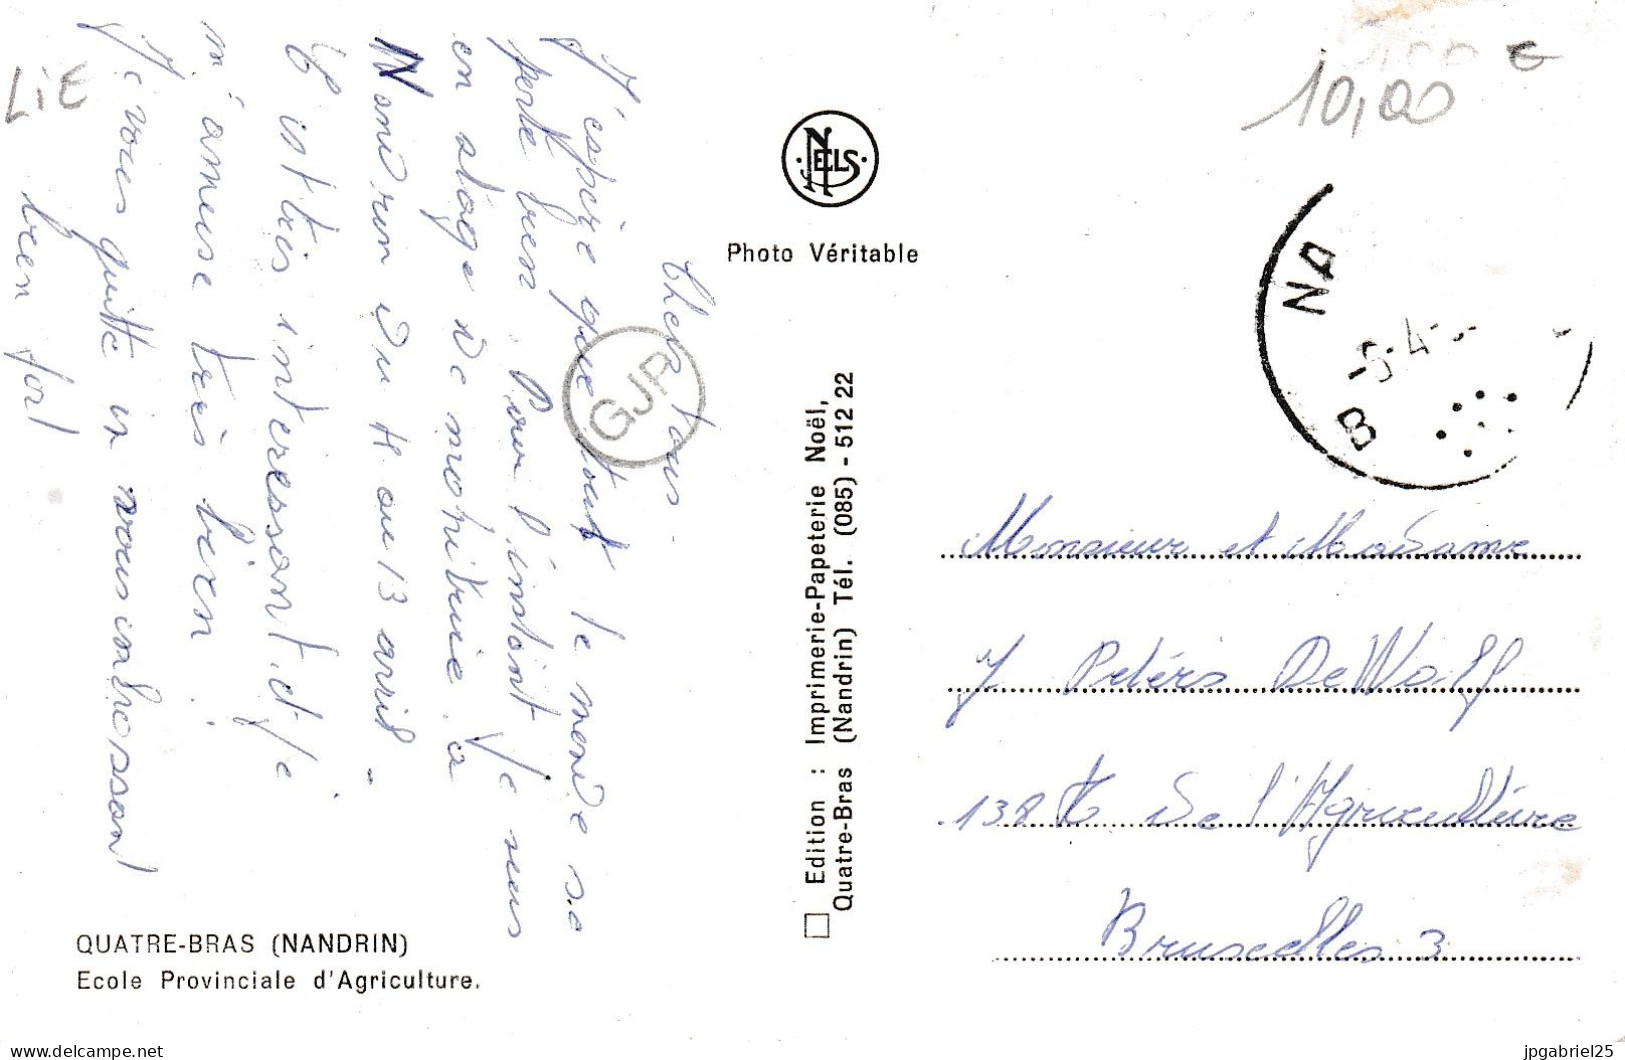 Chers tous.
J'espère que tout le monde se
porte bien. Pour l'instant je suis
en stage de moniteur à
Nandrin du 4 au 13 avril.
C'est très intéressant et je
m'amuse très bien.
Je vous quitte en vous embrassant
bien fort
LiE
QUATRE-BRAS (NANDRIN)
Ecole Provinciale d'Agriculture.
NELS
Photo Véritable
GJP
Edition : Imprimerie-Papeterie Noël,
Quatre-Bras (Nandrin) Tél. (085) - 512 22
10,00
NA
-5-4-
B
Monsieur et Madame
J Peters DeWolf
138 de l'Agriculture
Bruxelles 3
delcampe.net
jpgabriel25